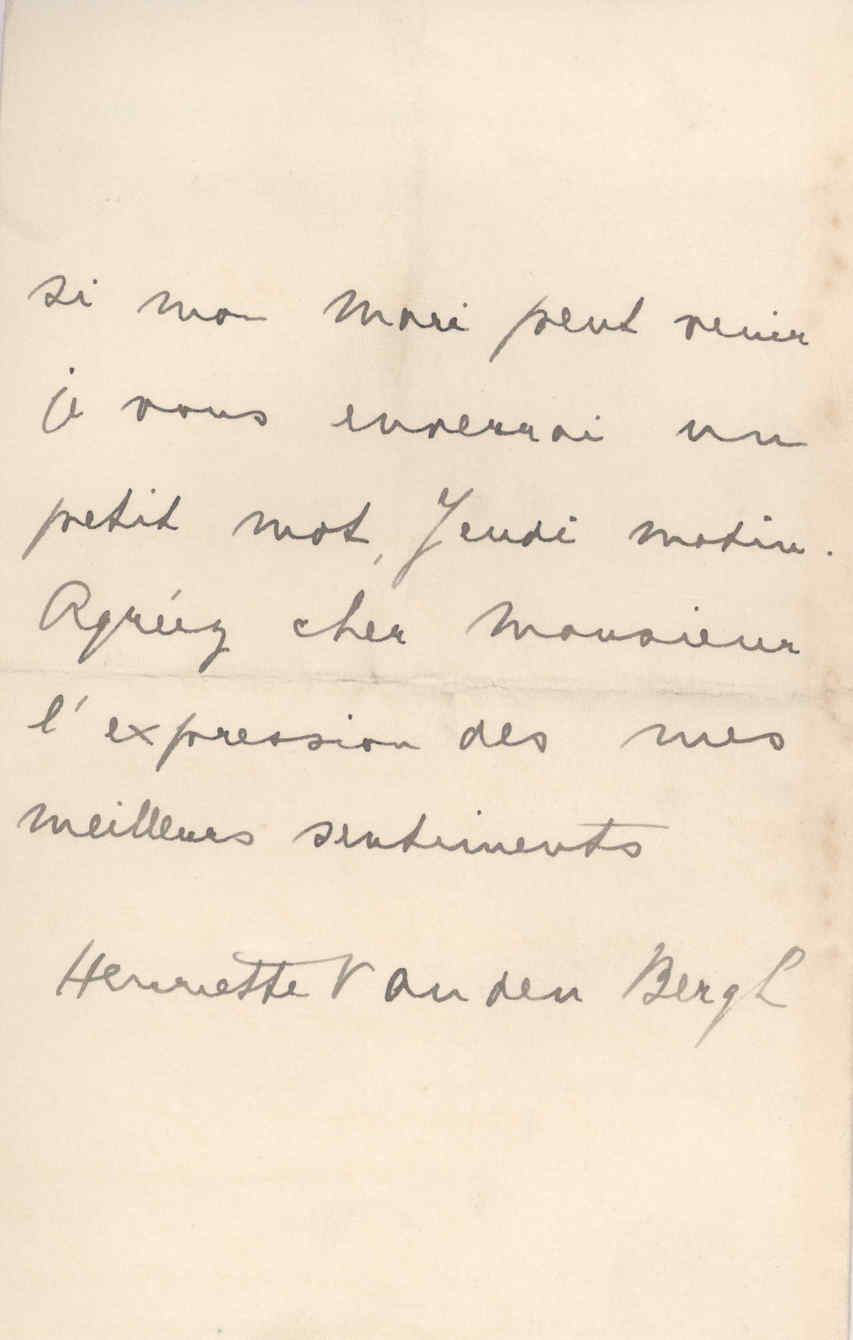 si mon mari peut venir
je vous enverrai un
petit mot, Jeudi matin.
Agréez cher Monsieur
l'expression des mes
meilleurs sentiments
Henriette Van den Bergh